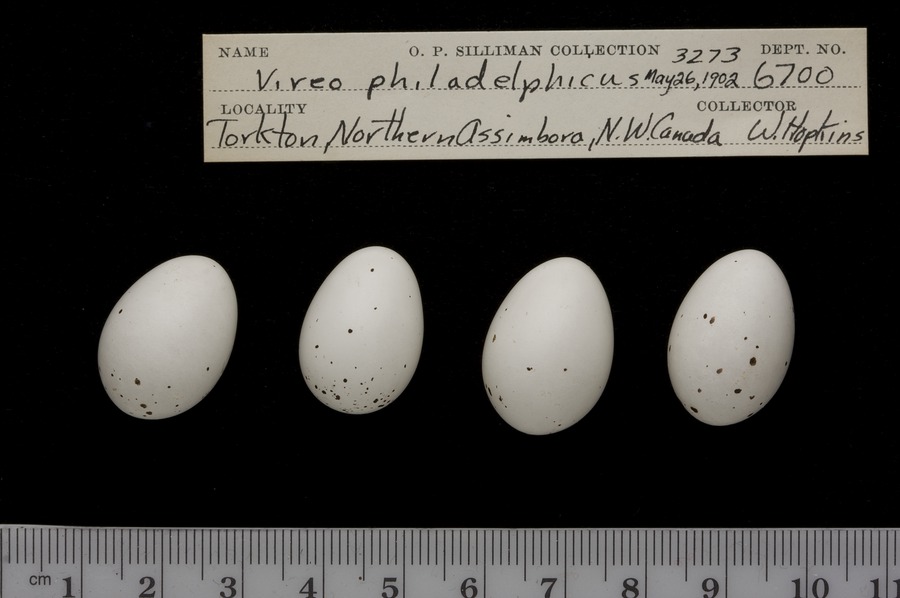 NAME O. P. SILLIMAN COLLECTION 3273 DEPT. NO.
Vireo philadelphicus May 26, 1902 6700
LOCALITY COLLECTOR
Torkton, Northern Assimbora, N.W. Canada W. Hopkins
cm 1 2 3 4 5 6 7 8 9 10 11